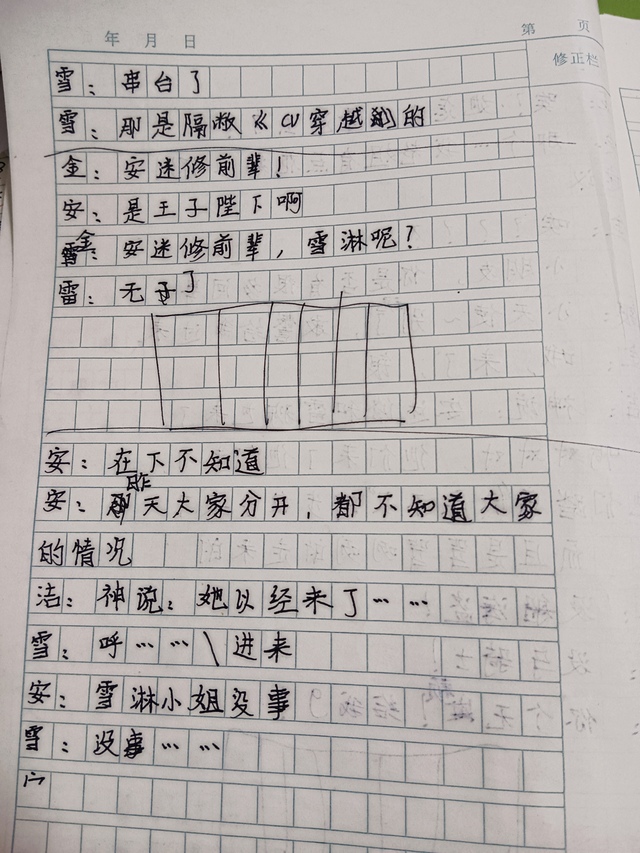 年 月 日 第 页
修正栏
雪：串台了
雪：那是隔敝《CV穿越到的
金：安迷修前辈！
安：是王子陛下啊
金：安迷修前辈，雪淋呢？
雷：无了
安：在下不知道
安：昨天大家分开，都不知道大家
的情况
洁：神说：她以经来了……
雪：呼……\进来
安：雪淋小姐没事
雪：没事……